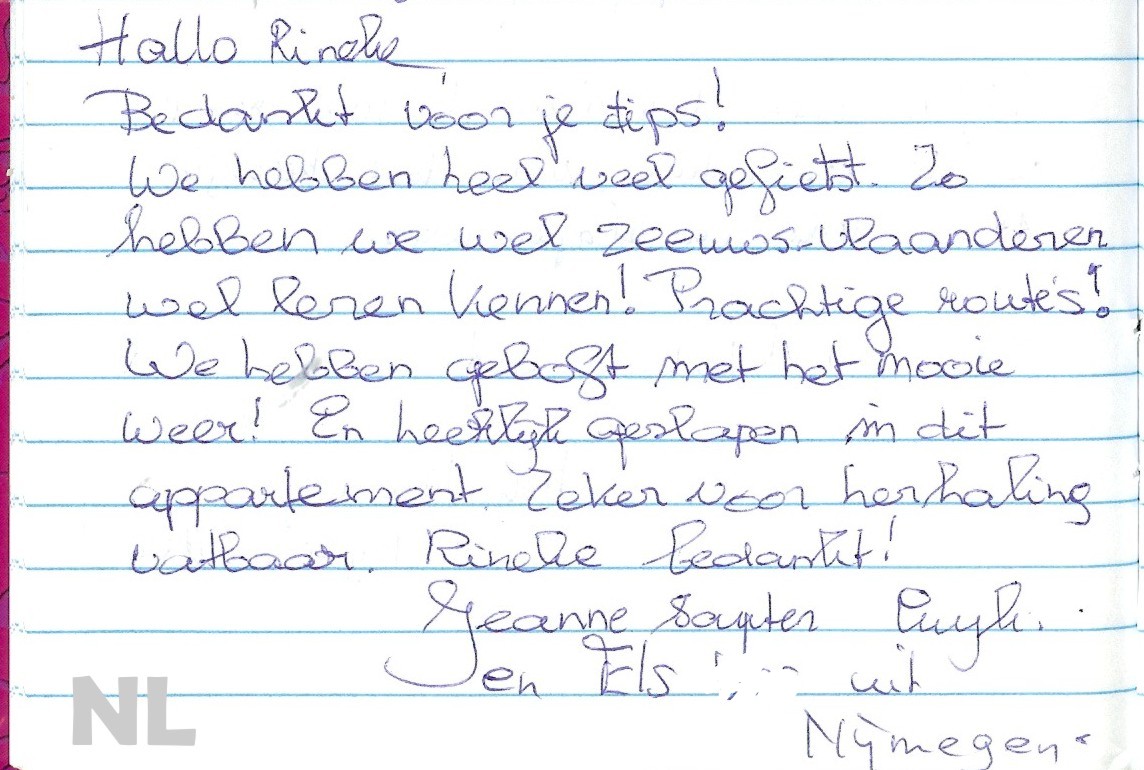 Hallo Rineke
Bedankt voor je tips!
We hebben heel veel gefietst. Zo
hebben we wel Zeeuws-Vlaanderen
wel leren kennen! Prachtige route's!
We hebben geboft met het mooie
weer! En heerlijk geslapen in dit
appartement. Zeker voor herhaling
vatbaar. Rineke bedankt!
Jeanne
en Els uit
Nijmegen.
NL